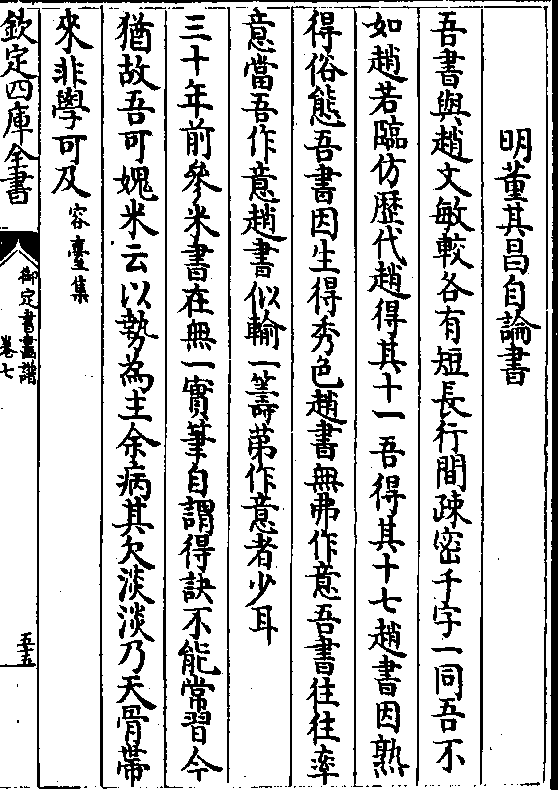 明董其昌自論書
吾書與趙文敏較各有短長行間疎密千字一同吾不
如趙若臨仿歷代趙得其十一吾得其十七趙書因熟
得俗態吾書因生得秀色趙書無弗作意吾書往往率
意當吾作意趙書似輸一籌苐作意者少耳
三十年前參米書在無一實筆自謂得訣不能常習今
猶故吾可媿米云以勢為主余病其欠淡淡乃天骨帶
來非學可及容臺集
欽定四庫全書
御定書畫譜
卷七
五十五